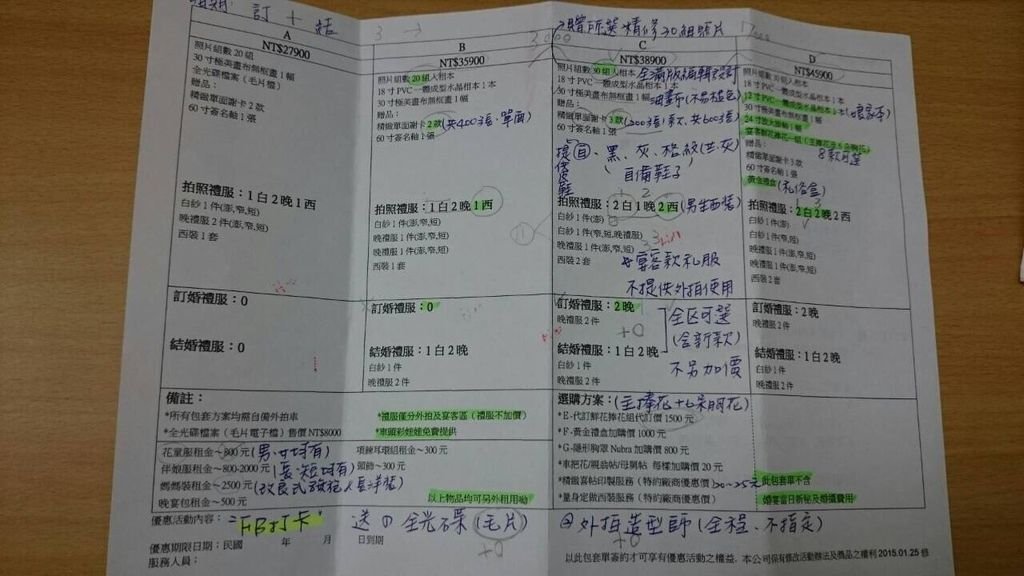 訂 + 結
已贈所選精修30組照片
A
NT$27900
照片組數 20 組
30 寸極美畫布無框畫 1 幅
全光碟檔案（毛片檔）
贈品：
精緻單面謝卡 2 款
60 寸簽名軸 1 張
拍照禮服：1 白 2 晚 1 西
白紗 1 件(澎,窄,短)
晚禮服 2 件(澎,窄,短)
西裝 1 套
訂婚禮服：0
結婚禮服：0
B
NT$35900
照片組數 20 組入相本
18 寸 PVC 一體成型水晶相本 1 本
30 寸極美畫布無框畫 1 幅
贈品：
精緻單面謝卡 2 款(共400張、單面)
60 寸簽名軸 1 張
拍照禮服：1 白 2 晚 1 西
白紗 1 件(澎,窄,短)
晚禮服 1 件(澎,窄,短)
晚禮服 1 件(澎,窄,短)
西裝 1 套
訂婚禮服：0
結婚禮服：1 白 2 晚
白紗 1 件
晚禮服 2 件
C
NT$38900
照片組數 30 組入相本 全滿版編輯設計
18 寸 PVC 一體成型水晶相本 1 本
30 寸極美畫布無框畫 1 幅 油畫布(不易褪色)
贈品：
精緻單面謝卡 3 款(200張1款、共600張)
60 寸簽名軸 1 張
提供西裝 、黑、灰、格紋(共灰)
自備鞋子
拍照禮服：2 白 1 晚 2 西(男生西裝)
白紗 1 件(澎)
白紗 1 件(窄,短,晚禮服)
晚禮服 1 件(澎,窄,短)
西裝 2 套
宴客款禮服
不提供外拍使用
訂婚禮服：2 晚
晚禮服 2 件
+0
全区可選
(含新款)
不另加價
結婚禮服：1 白 2 晚
白紗 1 件
晚禮服 2 件
D
NT$45900
照片組數 30 組入相本
18 寸 PVC 一體成型水晶相本 1 本
12 寸 PVC 一體成型水晶相本 1 本(娘家本)
30 寸極美畫布無框畫 1 幅
24 寸放大掛軸 1 幅
宴客鮮花捧花一組（主捧花及 6 朵胸花）
贈品： 8款可選
精緻單面謝卡 3 款
60 寸簽名軸 1 張
黃金禮盒(乳洛盒)
拍照禮服：2 白 2 晚 2 西
白紗 1 件(澎)
白紗 1 件(窄,短)
晚禮服 1 件(澎,窄,短)
晚禮服 1 件(澎,窄,短)
西裝 2 套
訂婚禮服：2 晚
晚禮服 2 件
結婚禮服：1 白 2 晚
白紗 1 件
晚禮服 2 件
備註：
*所有包套方案均需自備外拍車
*全光碟檔案（毛片電子檔）售價 NT$8000
*禮服僅分外拍及宴客區（禮服不加價）
*車頭彩娃娃免費提供
花童服租金～800 元(男、女均有)
伴娘服租金～800-2000 元(長、短均有)
媽媽裝租金～2500 元(改良式旗袍、長洋裝)
晚宴包租金～500 元
項鍊耳環組租金～300 元
頭飾～300 元
以上物品均可另外租用呦
選購方案：(主捧花+6朵胸花)
*E-代訂鮮花捧花組代訂價 1500 元
*F-黃金禮盒加購價 1000 元
*G-隱形胸罩 Nubra 加購價 800 元
*車把花/親翁帖/母舅帖 每樣加購價 20 元
*精緻喜帖印製服務（特約廠商優惠價）20-25元
*量身定做西裝服務（特約廠商優惠價）
此包套單不含
婚宴當日新秘及婚攝費用
優惠活動內容："FB打卡" 送① 全光碟(毛片) ②外拍造型師(全程、不指定)
+0
+0
優惠期限日期：民國 年 月 日到期
服務人員：
以此包套單簽約才可享有優惠活動之權益．本公司保有修改活動辦法及商品之權利 2015.01.25 修